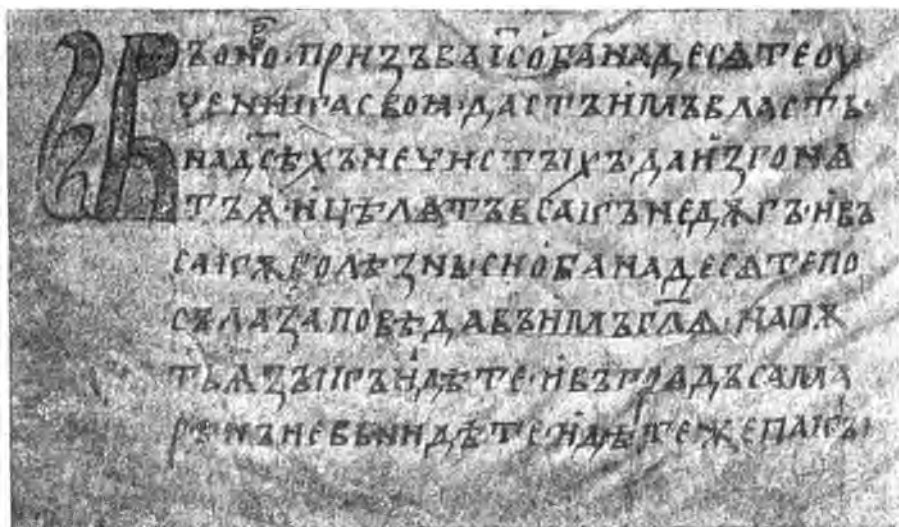 Въ оно· призъва іс҃ оба на десѧте оу
ченика своꙗ· дастъ имъ власть·
на дс҃ѣхъ нечистыхъ· да изгонѧ
тъ ѧ· и цѣлѧтъ всакъ недѫгъ· и въ
сакѫ болѣзнь· си оба на десѧте по
съла заповѣдавъ имъ гл҃ѧ· на пѫ
ть ѧзъікъ не идѣте· и въ градъ сама
рѣнъ не вьнидѣте· идѣте же пакъі